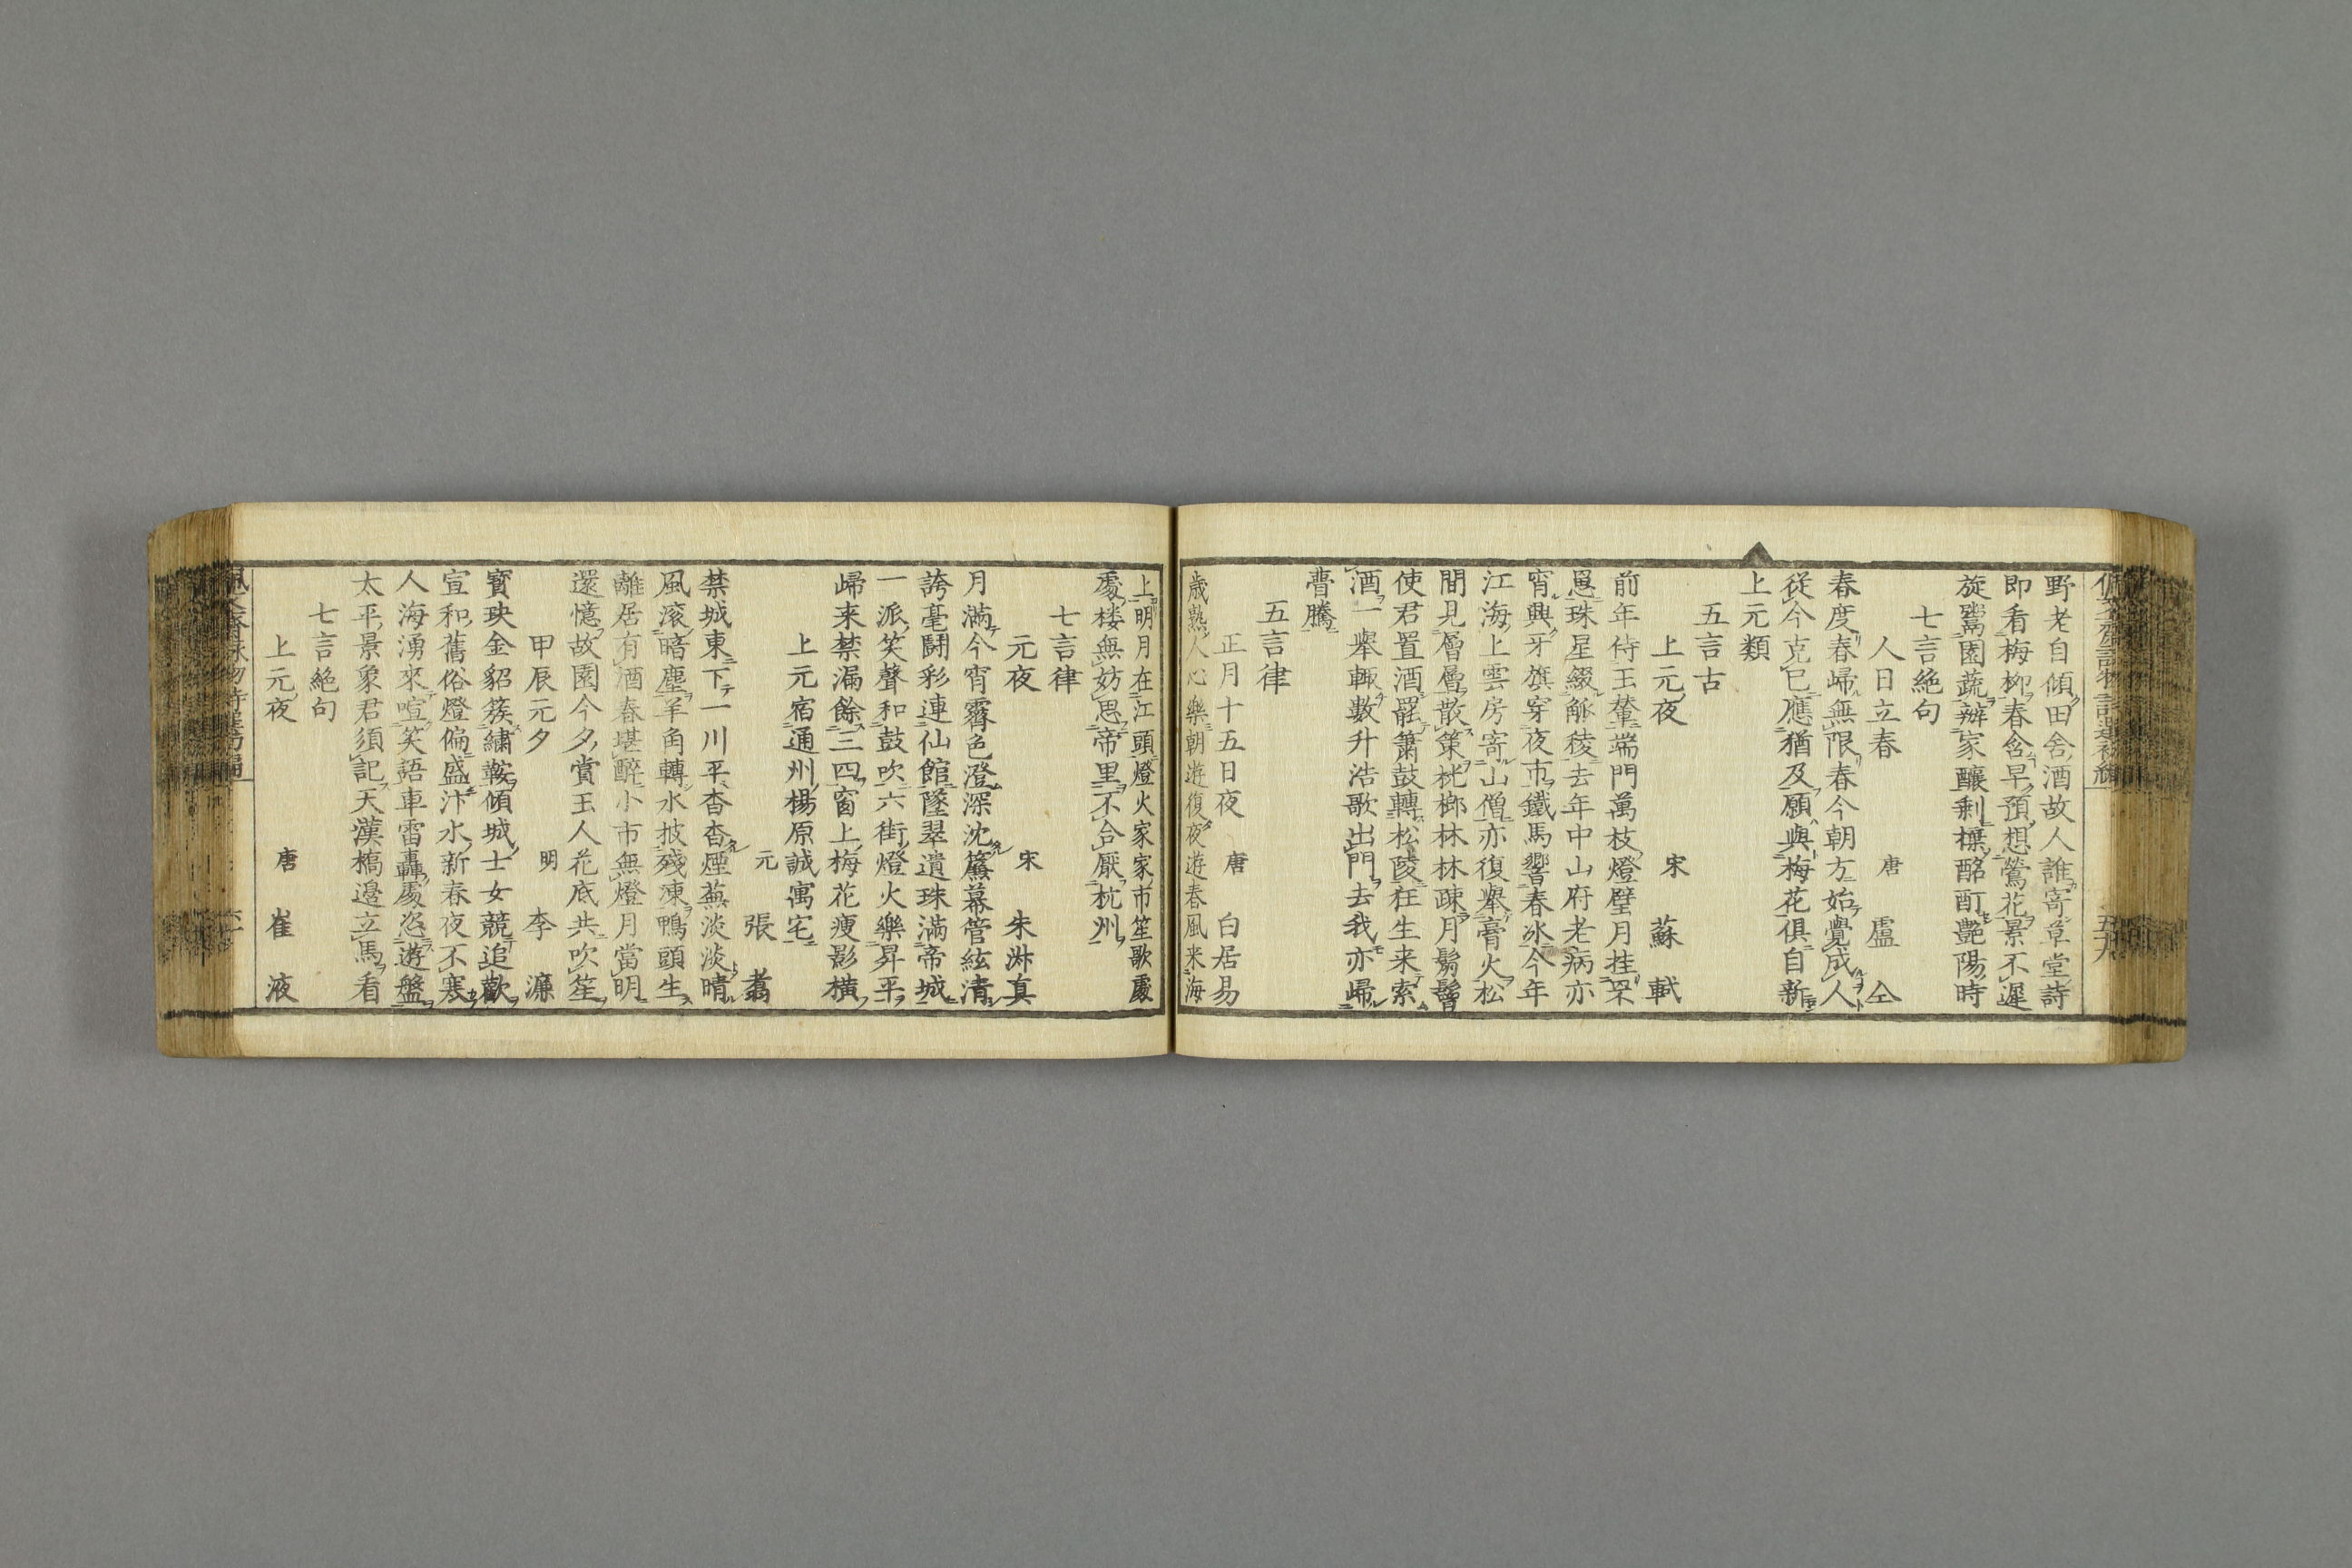 野老自傾田舍酒故人誰寄草堂詩
即看梅柳春含早預想鶯花景不遲
旋鬻園蔬辦家釀剩櫮酩酊艷陽時
七言絶句
人日立春　唐　盧仝
春度春歸無限春今朝方始覺成人
從今克已應猶及願與梅花俱自新
上元類
五言古
上元夜　宋　蘇軾
前年侍玉輦端門萬枝燈璧月挂罘
罳珠星綴觚稜去年中山府老病亦
宵興牙旗穿夜市鐵馬響春冰今年
江海上雲房寄山僧亦復舉膏火松
間見層層散策桄榔林林疎月鬅鬙
使君置酒罷簫鼓轉松陵狂生来索
酒一舉輒數升浩歌出門去我亦歸
瞢騰
五言律
正月十五日夜　唐　白居易
歳熟人心樂朝遊復夜遊春風来海
上明月在江頭燈火家家市笙歌處
處楼無妨思帝里不合厭杭州
七言律
元夜　宋　朱淑真
月滿今宵霽色澄深沈簾幕管絃清
誇毫闘彩連仙館墜翠遺珠滿帝城
一派笑聲和鼓吹六街燈火樂昇平
歸来禁漏餘三四窗上梅花瘦影横
上元宿通州楊原誠寓宅
元　張翥
禁城東下一川平杳杳煙蕪淡淡晴
風滾暗塵羊角轉水披殘凍鴨頭生
離居有酒春堪醉小市無燈月當明
還憶故園今夕賞玉人花底共吹笙
甲辰元夕　明　李濂
寳玦金貂簇繡鞍傾城士女競追歡
宣和舊俗燈偏盛汴水新春夜不寒
人海湧來喧笑語車雷轟處恣遊盤
太平景象君須記天漢橋邊立馬看
七言絶句
上元夜　唐　崔液